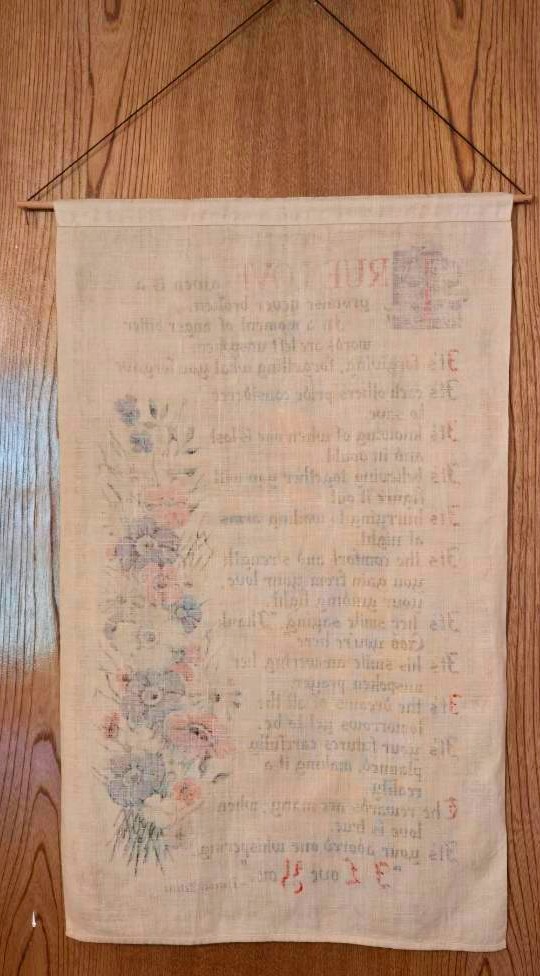 TRUE LOVE given is a
promise never broken.
In a moment of anger bitter
words are left unspoken.
It's forgiving, forgetting what you forgave
It's each others pride considered
to save.
It's knowing of when one is lost
and in doubt
It's believing together you will
figure it out
It's hurrying to waiting arms
at night
It's the comfort and strength
you gain from your love
your guiding light.
It's her smile saying, "Thank
God you're here"
It's his smile answering her
unspoken prayer
It's the dreams of all the
tomorrows yet to be.
It's your futures carefully
planned, making it a
reality
The rewards are many, when
love is true.
It's your adored one whispering,
"I Love You."